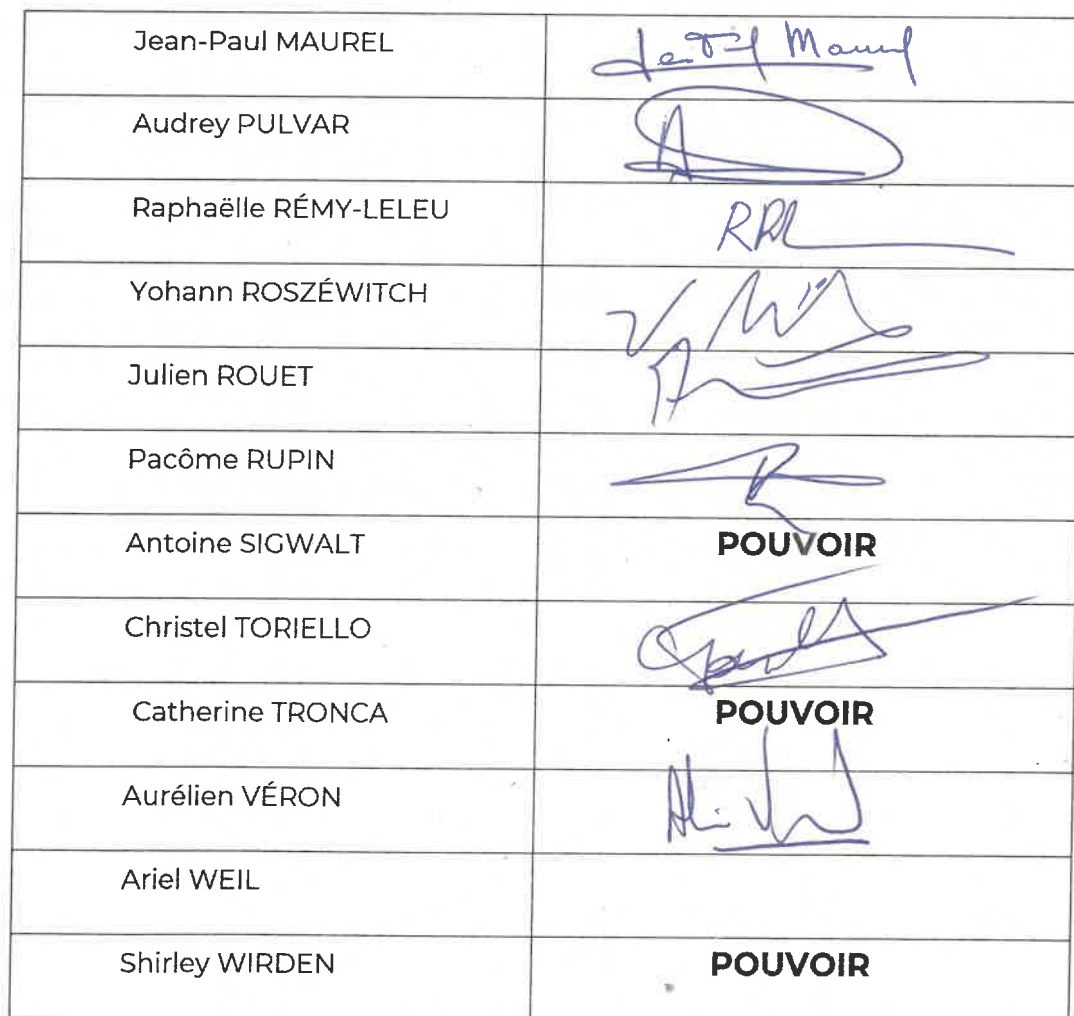 Jean-Paul MAUREL
Maurel
Audrey PULVAR
Raphaëlle RÉMY-LELEU
RRL
Yohann ROSZÉWITCH
Julien ROUET
Pacôme RUPIN
Antoine SIGWALT POUVOIR
Christel TORIELLO
Catherine TRONCA POUVOIR
Aurélien VÉRON
Ariel WEIL
Shirley WIRDEN POUVOIR